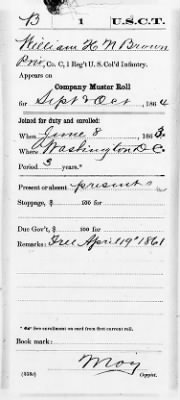 B | 1 | U.S.C.T.
William H. N. Brown
Priv, Co. C, 1 Reg't U. S. Col'd Infantry.
Appears on
Company Muster Roll
for Sept & Oct, 1864
Joined for duty and enrolled:
When June 8, 1863.
Where Washington D.C.
Period 3 years.*
Present or absent present
Stoppage, $ 100 for
Due Gov't, $ 100 for
Remarks: Free April 19" 1861
* See enrollment on card from first company muster roll.
Book mark:
(358c) Copyist.